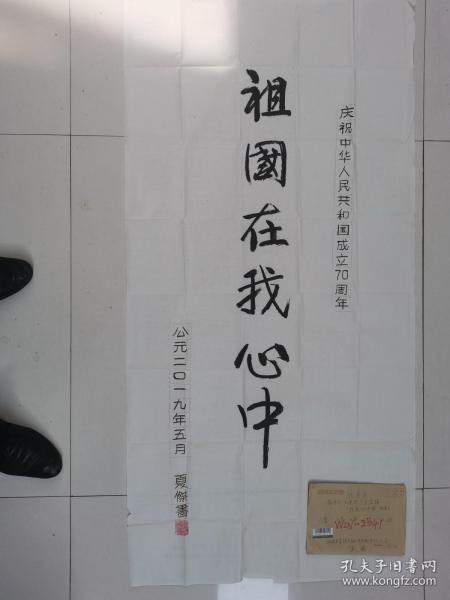 庆祝中华人民共和国成立70周年
祖國在我心中
公元二〇一九年五月 夏傑書
孔夫子旧书网
www.kongfz.com